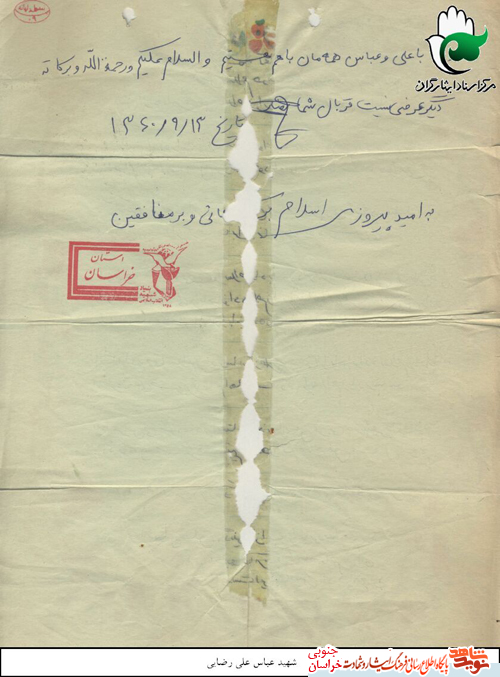 مرکز اسناد ایثارگران
با علی و عباس همه‌مان باهم والسلام علیکم و رحمة الله و برکاته
دیگر عرضی نیست قربان شما
تاریخ ۱۳۶۰/۹/۱۳
به امید پیروزی اسلام بر و بر منافقین
استان
خراسان
شهید عباس علی رضایی
نوید شاهد
پایگاه اطلاع رسانی فرهنگ ایثار و شهادت
خراسان جنوبی